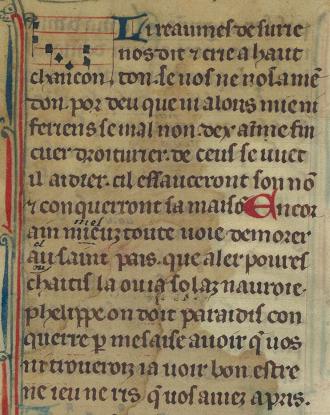 Li reaumes de surie
nos dit ⁊ crie a haut
chancon. ton. Se nos ne nos amē
don. por deu que ni alons mie ni
feriens se mal non. dex aīme fin
cuer droiturier. de ceus se uuet
il aidier. cil essauceront son nō
⁊ conquerront sa maisō. Encor
aim mieuz toute uoie demorer
au saint pais. que aler poures
chaitis la ou ia solaz nauroie.
phelippe on doit paradis con
querre ꝑ mesaise auoir qͥ uos
ni trouerez ia uoir bon estre
ne ieu ne ris qͥ uos auiez apris.